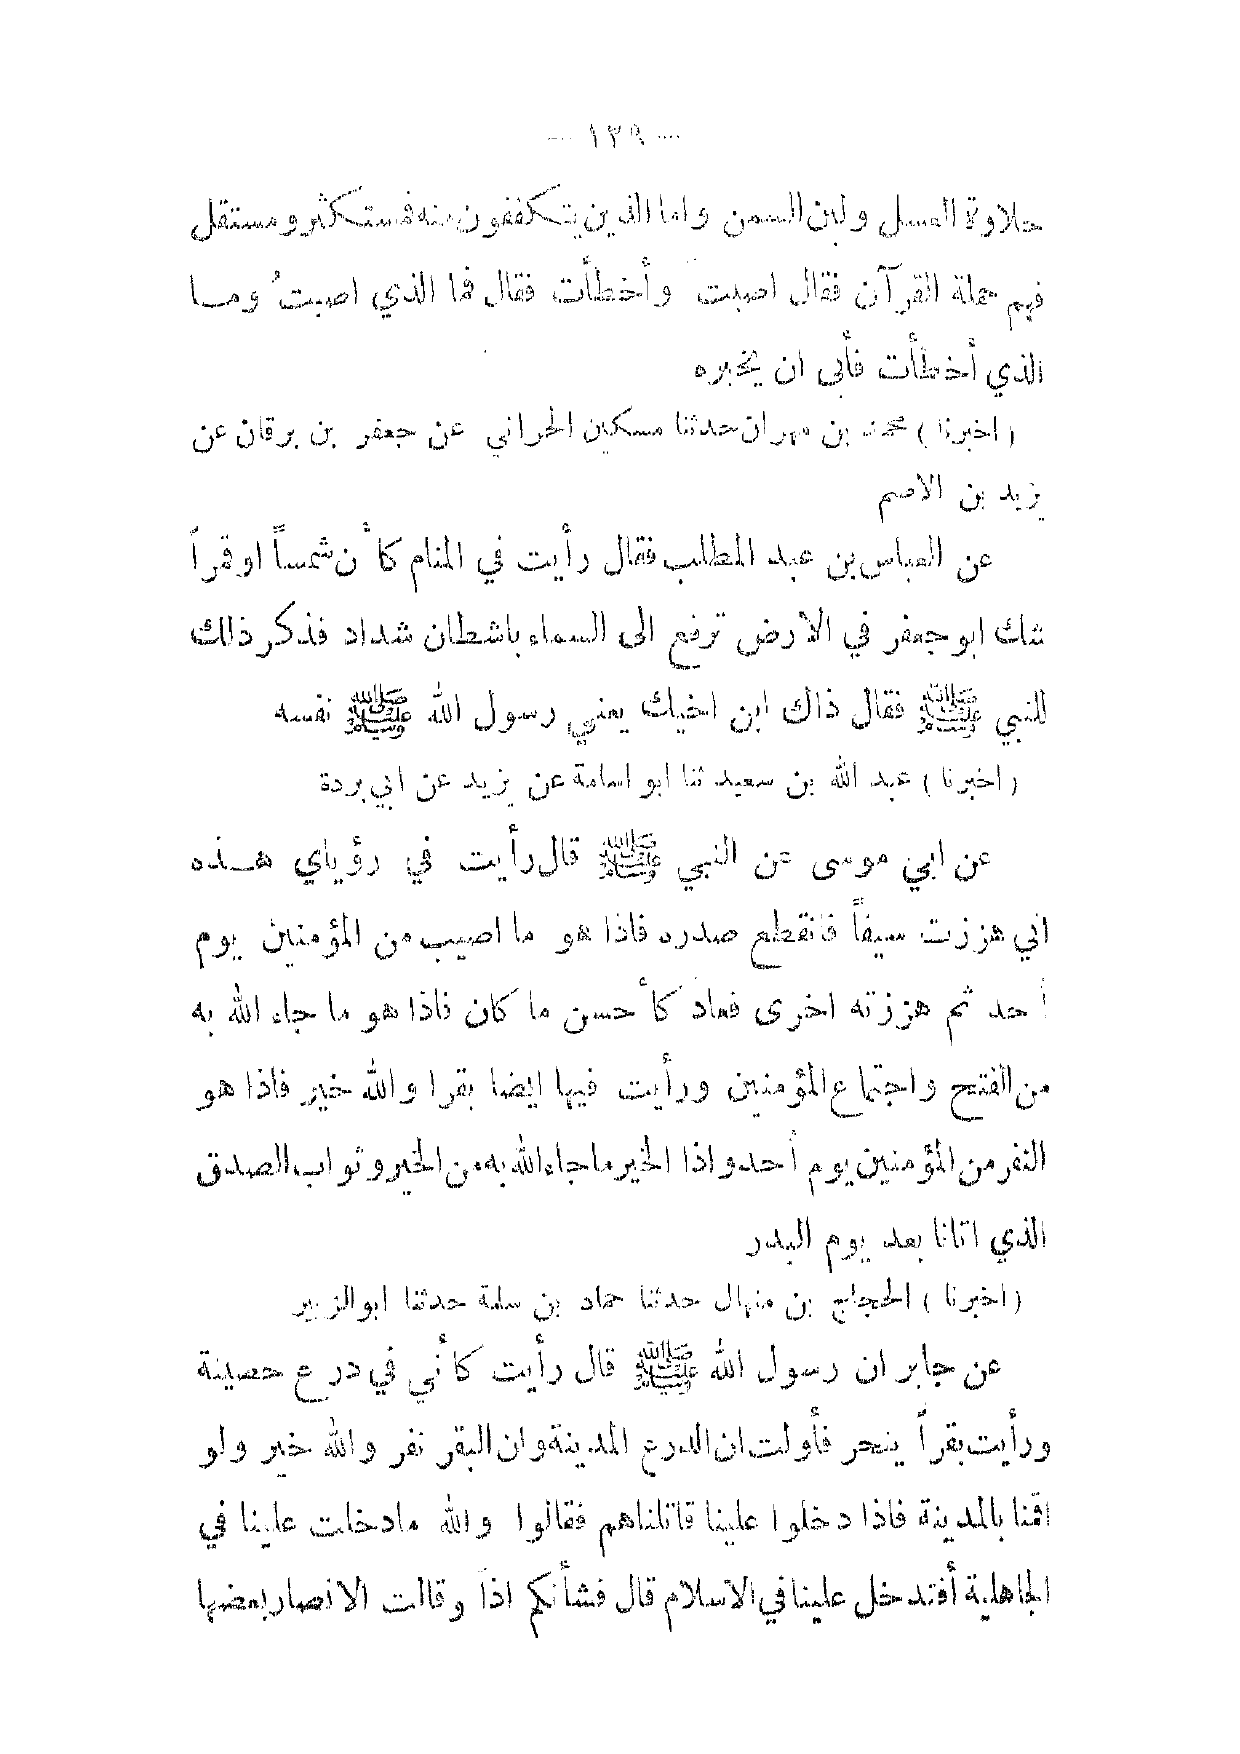 — ١٣٩ —
حلاوة العسل ولين السمن واما الذين يتكففون منه فمستكثر ومستقل
فهم حملة القرآن فقال اصبت وأخطأت فقال فما الذي اصبتُ ومـا
الذي أخطأت فأبى ان يخبره
( اخبرنا ) محمد بن مهران حدثنا مسكين الحراني عن جعفر بن برقان عن
يزيد بن الاصم
عن العباس بن عبد المطلب فقال رأيت في المنام كأن شمساً او قمراً
شك ابو جعفر في الارض ترفع الى السماء باشطان شداد فذكر ذلك
للنبي ﷺ فقال ذاك ابن اخيك يعني رسول الله ﷺ نفسه
( اخبرنا ) عبد الله بن سعيد ثنا ابو اسامة عن يزيد عن ابي بردة
عن ابي موسى عن النبي ﷺ قال رأيت في رؤياي هـذه
اني هززت سيفاً فانقطع صدره فاذا هو ما اصيب من المؤمنين يوم
أحد ثم هززته اخرى فعاد كأحسن ما كان فاذا هو ما جاء الله به
من الفتح واجتماع المؤمنين ورأيت فيها ايضا بقرا والله خير فاذا هو
النفر من المؤمنين يوم أحد واذا الخير ما جاء الله به من الخير وثواب الصدق
الذي اتانا بعد يوم البدر
( اخبرنا ) الحجاج بن منهال حدثنا حماد بن سلمة حدثنا ابو الزبير
عن جابر ان رسول الله ﷺ قال رأيت كأني في درع حصينة
ورأيت بقراً ينحر فأولت ان الدرع المدينة وان البقر نفر والله خير ولو
اقمنا بالمدينة فاذا دخلوا علينا قاتلناهم فقالوا والله ما دخلت علينا في
الجاهلية أفتدخل علينا في الاسلام قال فشأنكم اذاً وقالت الانصار بعضها